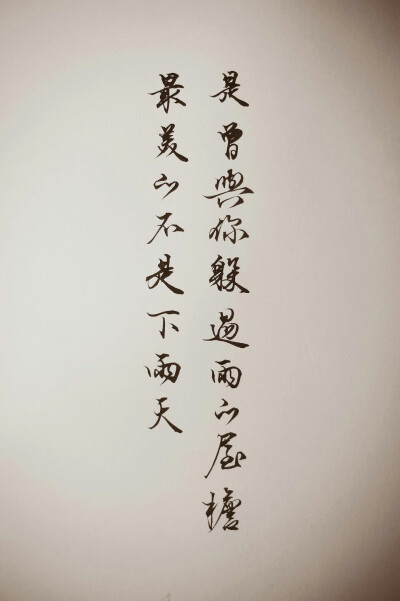 最美的不是下雨天
是曾與你躲過雨的屋檐